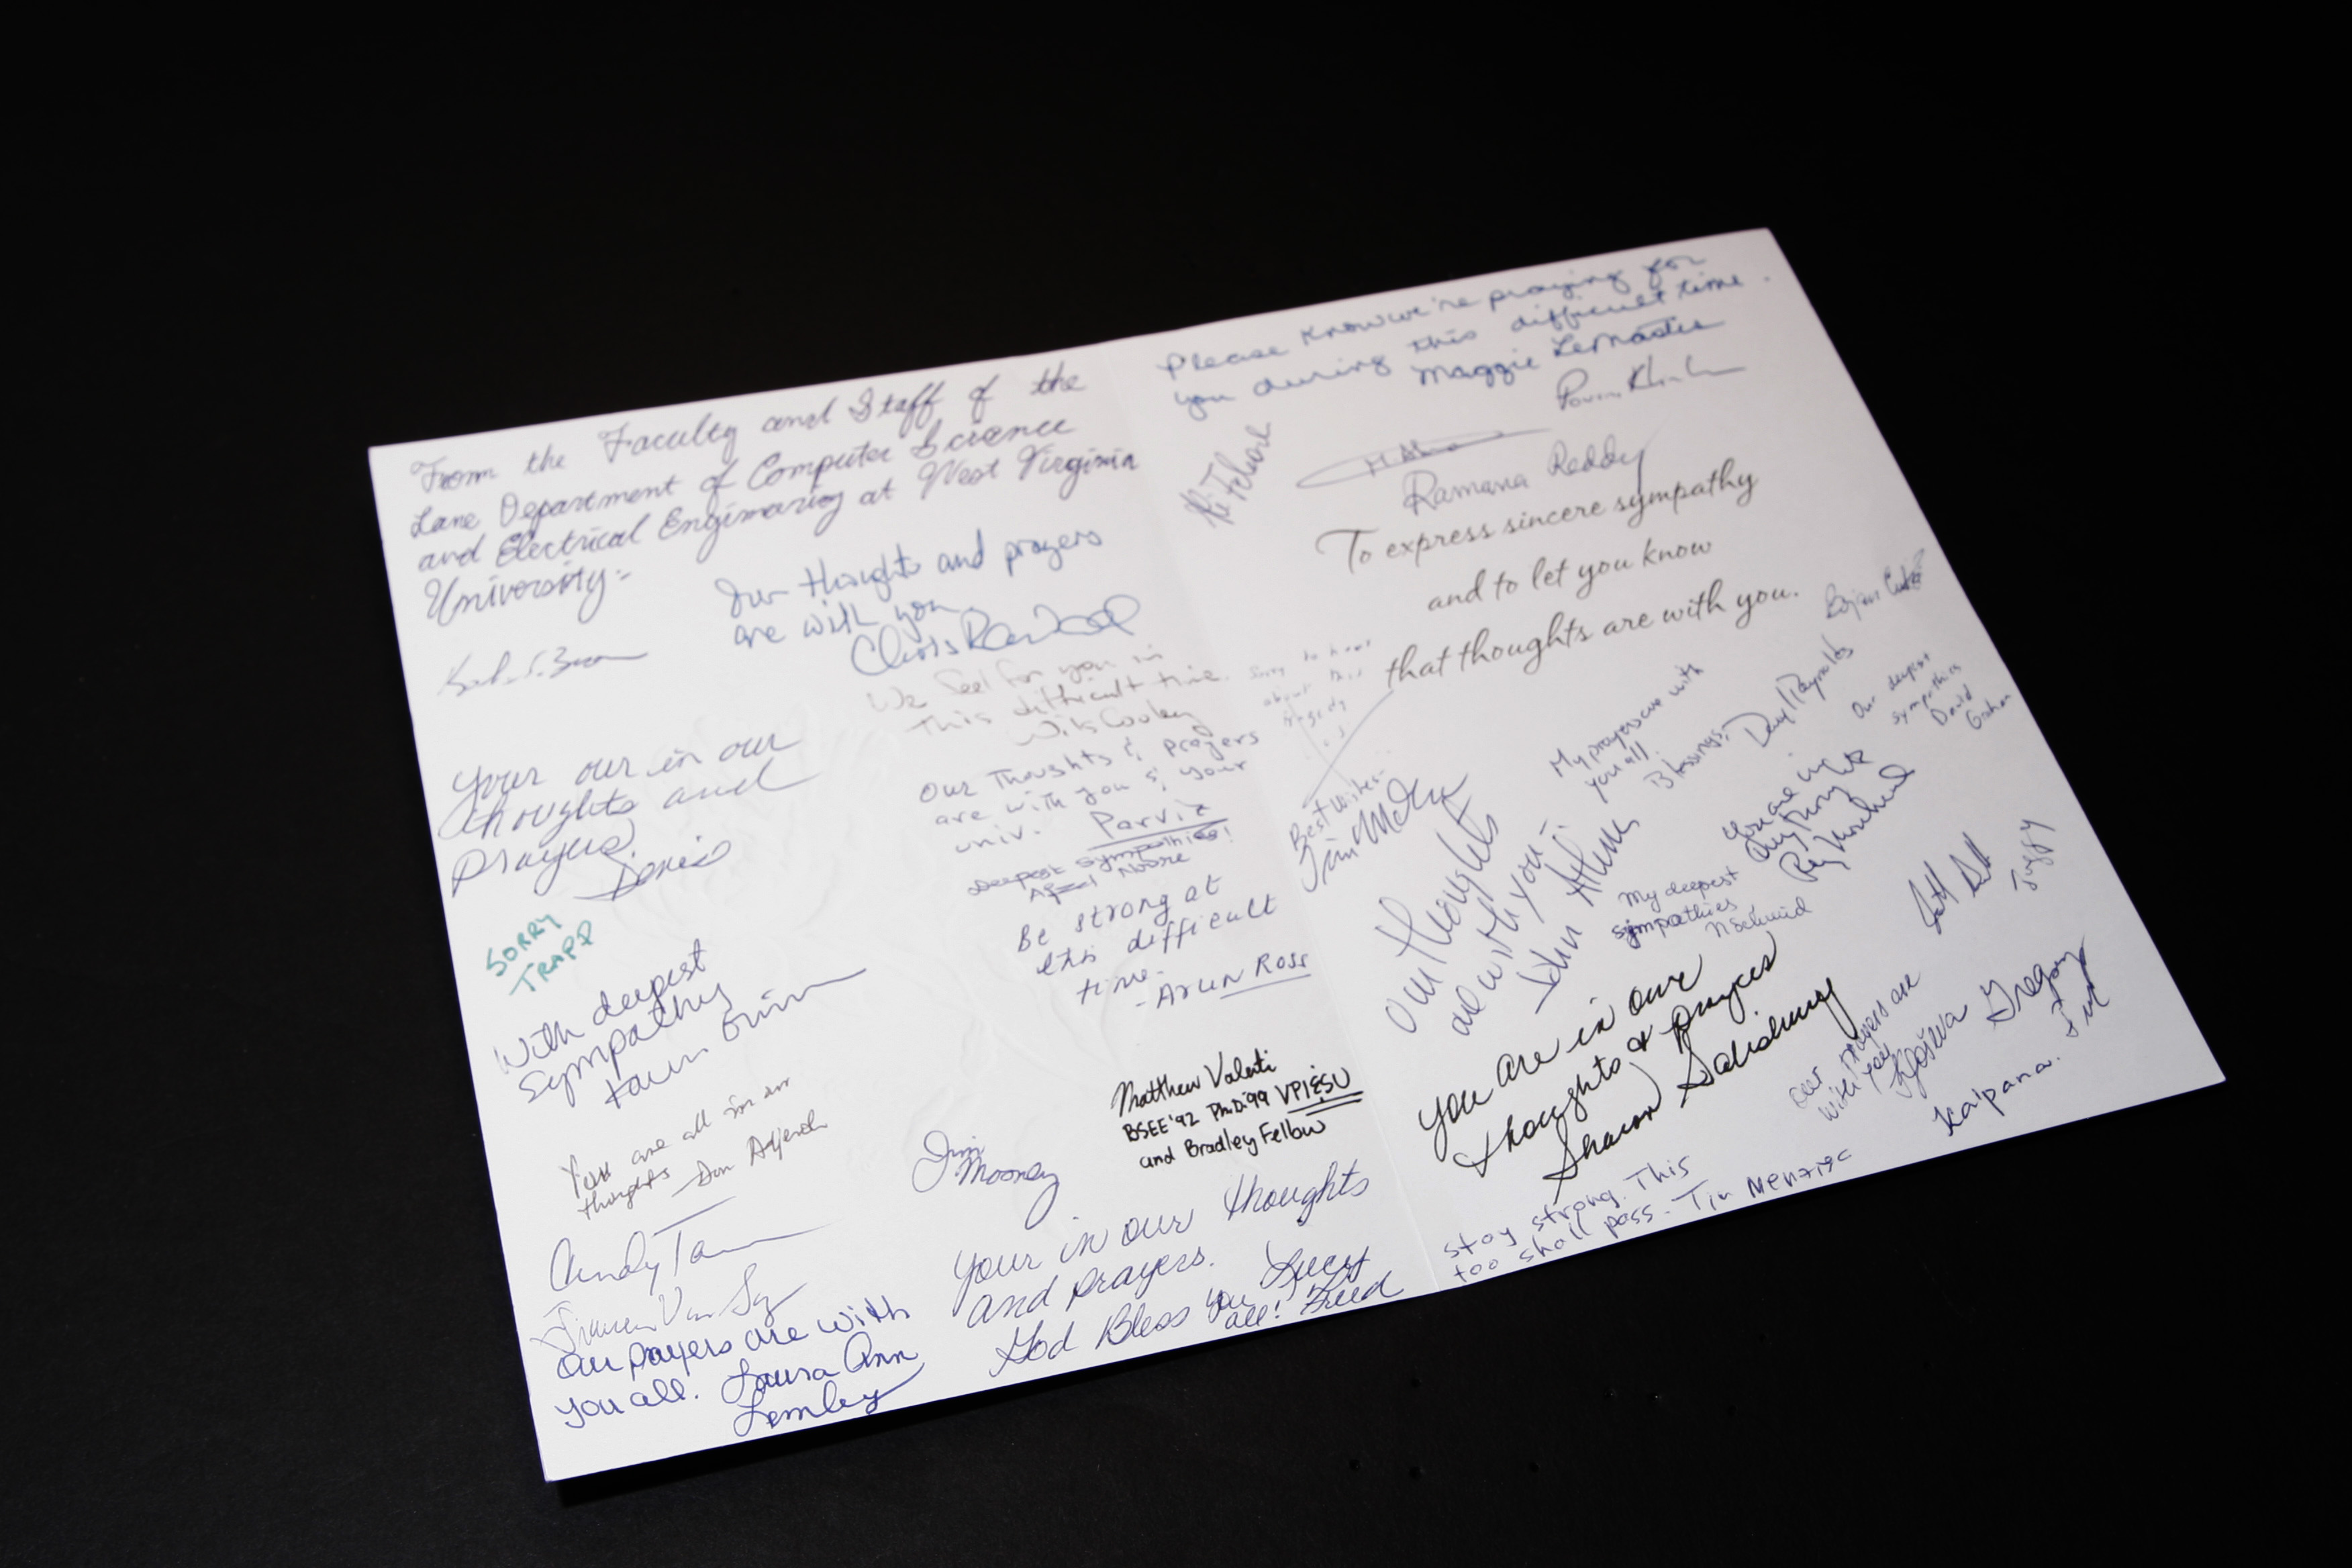 From the Faculty and Staff of the
Lane Department of Computer Science
and Electrical Engineering at West Virginia
University:-
Our thoughts and prayers
are with you
Chris
We feel for you in
this difficult time.
Wils Cooley
Your our in our
thoughts and
prayers
Our Thoughts & prayers
are with you & your
univ. Parviz
Deepest Sympathies!
Afzel Noore
SORRY
TRAPP
Be strong at
this difficult
time.
- Arun Ross
With deepest
Sympathy
Matthew Valenti
BSEE '92 Ph.D. '99 VPI&SU
and Bradley Fellow
You are all in our
thoughts Don Adjeroh
Jim
Mooney
Cindy
Your in our thoughts
and prayers.
God Bless You all!
Our prayers are with
you all. Laura Ann
Lemley
Please know we're praying for
you during this difficult time.
Maggie LeMaster
Ramana Reddy
To express sincere sympathy
and to let you know
that thoughts are with you.
Sorry to hear
about this
tragedy
Bojan Cukic
My prayers are with
you all
Blessings, Daryl Reynolds
Our deepest
sympathies
David
Graham
Best wishes-
Tim
Our thoughts
are with you -
John Atkins
You are in
My deepest
sympathies
You are in our
thoughts & prayers
Sharon
Our prayers are
with you
Gregory
Kalpana.
Stay strong. This
too shall pass - Tim Menzies